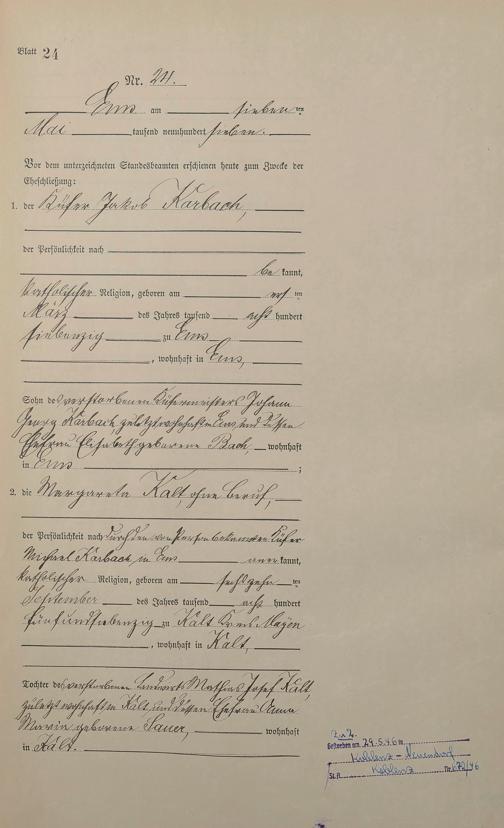 Blatt 24
Nr. 24.
Ems am sieben ten
Mai tausend neunhundert sieben.
Vor dem unterzeichneten Standesbeamten erschienen heute zum Zwecke der
Eheschließung:
1. der Küfer Jakob Karbach,
der Persönlichkeit nach
be kannt,
katholischer Religion, geboren am ers ten
März des Jahres tausend acht hundert
siebenzig zu Ems
, wohnhaft in Ems,
Sohn des verstorbenen Küfermeisters Johann
Georg Karbach, zuletzt wohnhaft in Ems, und dessen
Ehefrau Elisabeth geborene Bach, wohnhaft
in Ems ;
2. die Margareta Kalt, ohne Beruf,
der Persönlichkeit nach durch den von Person bekannten Küfer
Michael Karbach, in Ems aner kannt,
katholischer Religion, geboren am sechszehn ten
September des Jahres tausend acht hundert
fünfundsiebenzig zu Kalt Kreis Mayen
, wohnhaft in Kalt,
Tochter des verstorbenen Landwirts Mathias Josef Kalt,
zuletzt wohnhaft in Kalt, und dessen Ehefrau Anna
Maria geborene Sauer, wohnhaft
in Kalt.
Zu 2.
Gestorben am 29.5.46 in
Koblenz - Neuendorf
St.A. Koblenz Nr. 672/46